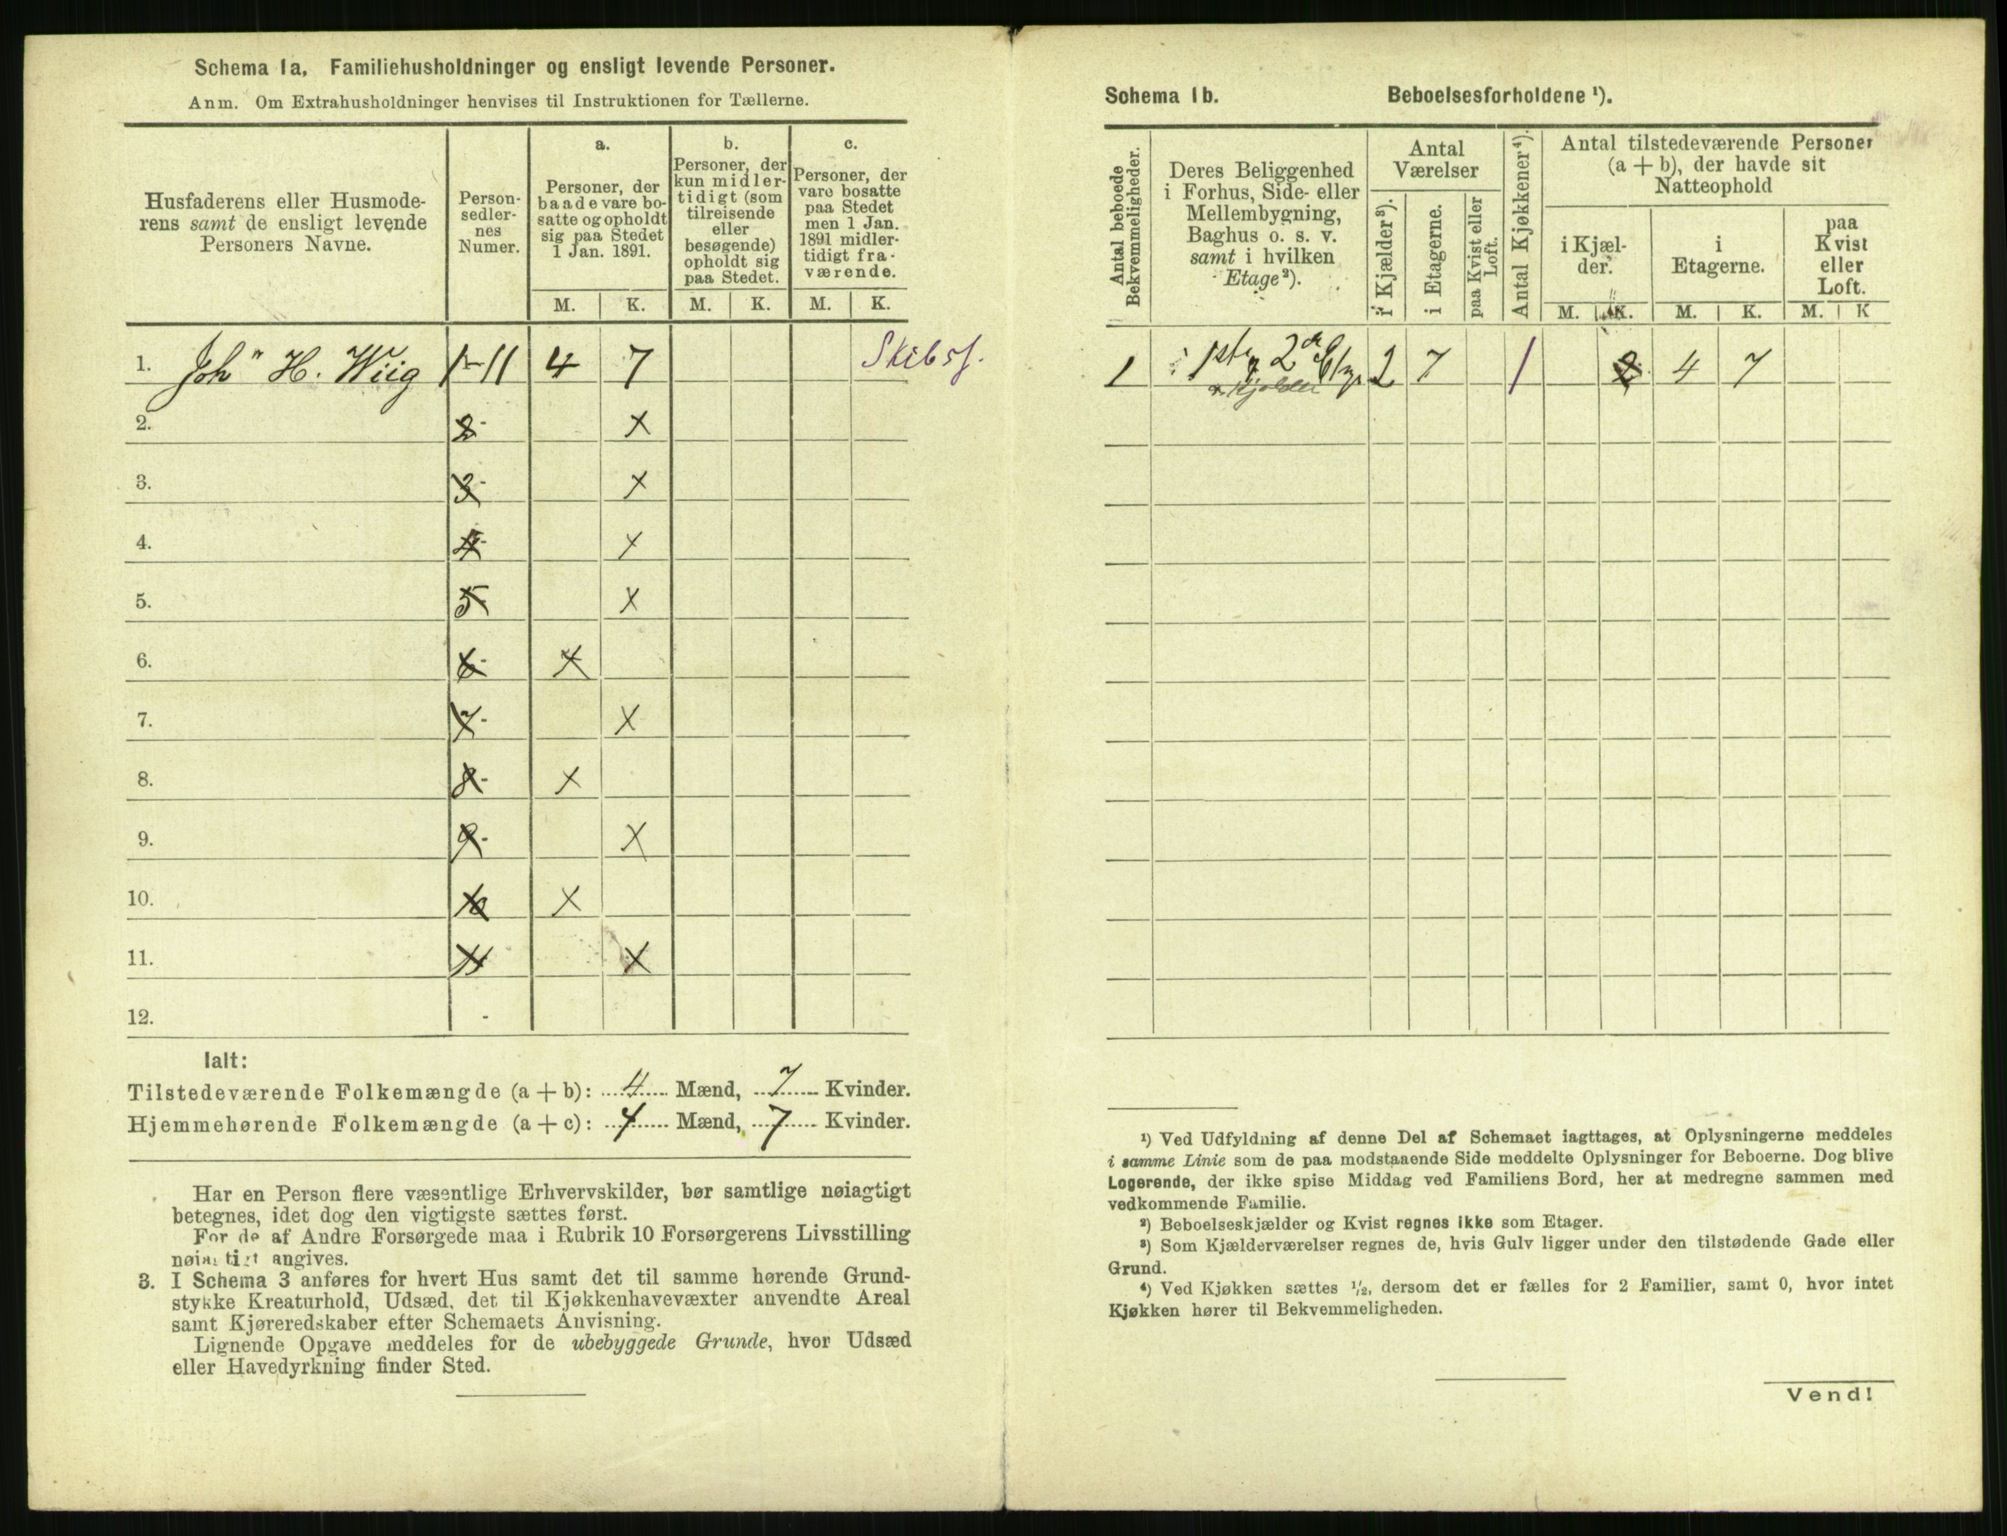 Schema 1a. Familiehusholdninger og ensligt levende Personer.
Anm. Om Extrahusholdninger henvises til Instruktionen for Tællerne.
Husfaderens eller Husmode-
rens samt de ensligt levende
Personers Navne.
Person-
sedler-
nes
Numer.
a.
Personer, der
baade vare bo-
satte og opholdt
sig paa Stedet
1 Jan. 1891.
b.
Personer, der
kun midler-
tidigt (som
tilreisende
eller
besøgende)
opholdt sig
paa Stedet.
c.
Personer, der
vare bosatte
paa Stedet
men 1 Jan.
1891 midler-
tidigt fra-
værende.
M. K. M. K. M. K.
1. Joh" H. Wiig 1-11 4 7 Skibsf.
2. 2- x
3. 3- x
4. 4- x
5. 5- x
6. 6- x
7. 7- x
8. 8- x
9. 9- x
10. 10 x
11. 11 x
12. -
Ialt:
Tilstedeværende Folkemængde (a + b): 4 Mænd, 7 Kvinder.
Hjemmehørende Folkemængde (a + c): 4 Mænd, 7 Kvinder.
Har en Person flere væsentlige Erhvervskilder, bør samtlige nøiagtigt
betegnes, idet dog den vigtigste sættes først.
For de af Andre Forsørgede maa i Rubrik 10 Forsørgerens Livsstilling
nøiagtigt angives.
3. I Schema 3 anføres for hvert Hus samt det til samme hørende Grund-
stykke Kreaturhold, Udsæd, det til Kjøkkenhavevæxter anvendte Areal
samt Kjøreredskaber efter Schemaets Anvisning.
Lignende Opgave meddeles for de ubebyggede Grunde, hvor Udsæd
eller Havedyrkning finder Sted.
Schema 1b. Beboelsesforholdene ¹).
Antal beboede
Bekvemmeligheder.
Deres Beliggenhed
i Forhus, Side- eller
Mellembygning,
Baghus o. s. v.
samt i hvilken
Etage²).
Antal
Værelser
i Kjælder³).
i Etagerne.
paa Kvist eller
Loft.
Antal Kjøkkener⁴).
Antal tilstedeværende Personer
(a + b), der havde sit
Natteophold
i Kjæl-
der.
i
Etagerne.
paa
Kvist
eller
Loft.
M. K. M. K. M. K
1 i 1ste 2den Etage 2 7 1 2 4 7
Kjelder
¹) Ved Udfyldning af denne Del af Schemaet iagttages, at Oplysningerne meddeles
i samme Linie som de paa modstaaende Side meddelte Oplysninger for Beboerne. Dog blive
Logerende, der ikke spise Middag ved Familiens Bord, her at medregne sammen med
vedkommende Familie.
²) Beboelseskjælder og Kvist regnes ikke som Etager.
³) Som Kjælderværelser regnes de, hvis Gulv ligger under den tilstødende Gade eller
Grund.
⁴) Ved Kjøkken sættes ¹/₂, dersom det er fælles for 2 Familier, samt 0, hvor intet
Kjøkken hører til Bekvemmeligheden.
Vend!